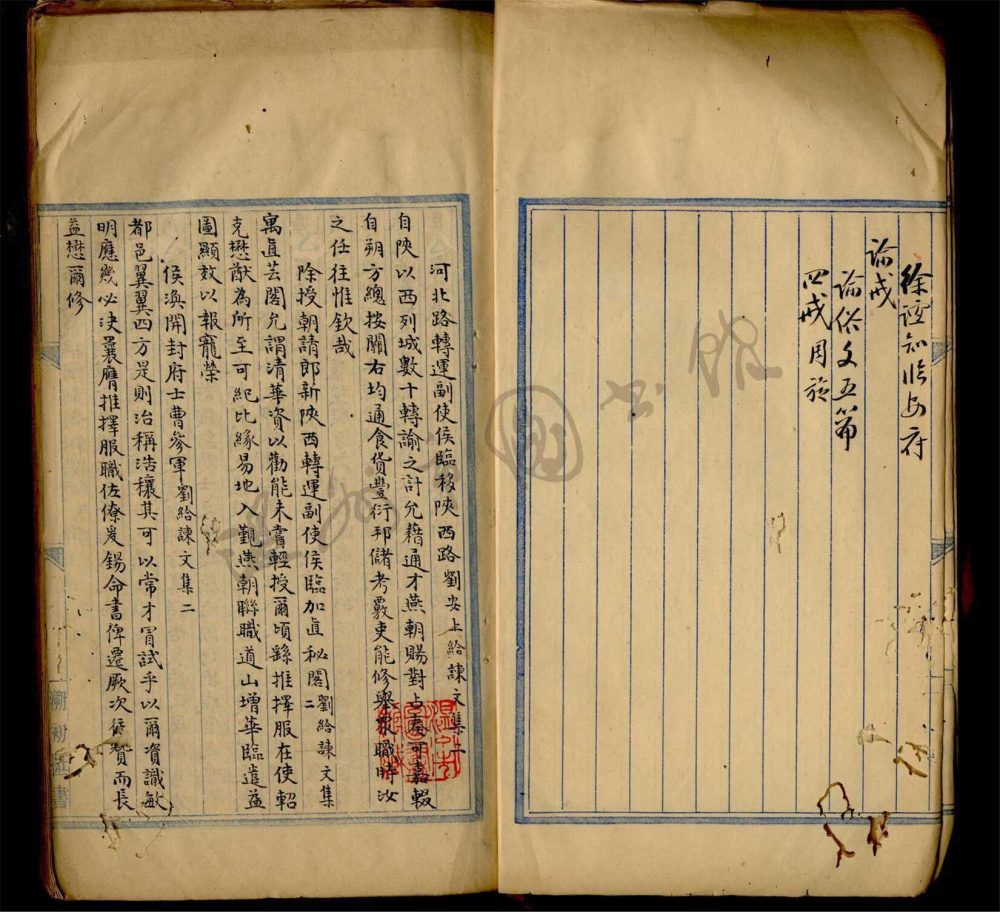 徐誼知臨安府
諭戒
諭俗文五篇
四戒 周旋
河北路轉運副使侯臨移陝西路 劉安上給諫文集二
自陝以西列城數十轉諭之計允藉通才燕朝賜對占奏可嘉輟
自朔方總按關右均通食貨豐衍邦儲考覈吏能修舉眾職時汝
之任往惟欽哉
除授朝請郎新陝西轉運副使侯臨加直秘閣 劉給諫文集二
寓直芸閣允謂清華資以勸能未嘗輕授爾頃繇推擇服在使軺
克懋猷為所至可紀比緣易地入覲燕朝聯職道山增華臨遣益
圖顯效以報寵榮
侯渙開封府士曹參軍 劉給諫文集二
都邑翼翼四方是則治稱浩穰其可以常才冐試乎以爾資識敏
明應幾必決曩膺推擇服職佐僚爰錫命書俾遷厥次往贊而長
益懋爾修